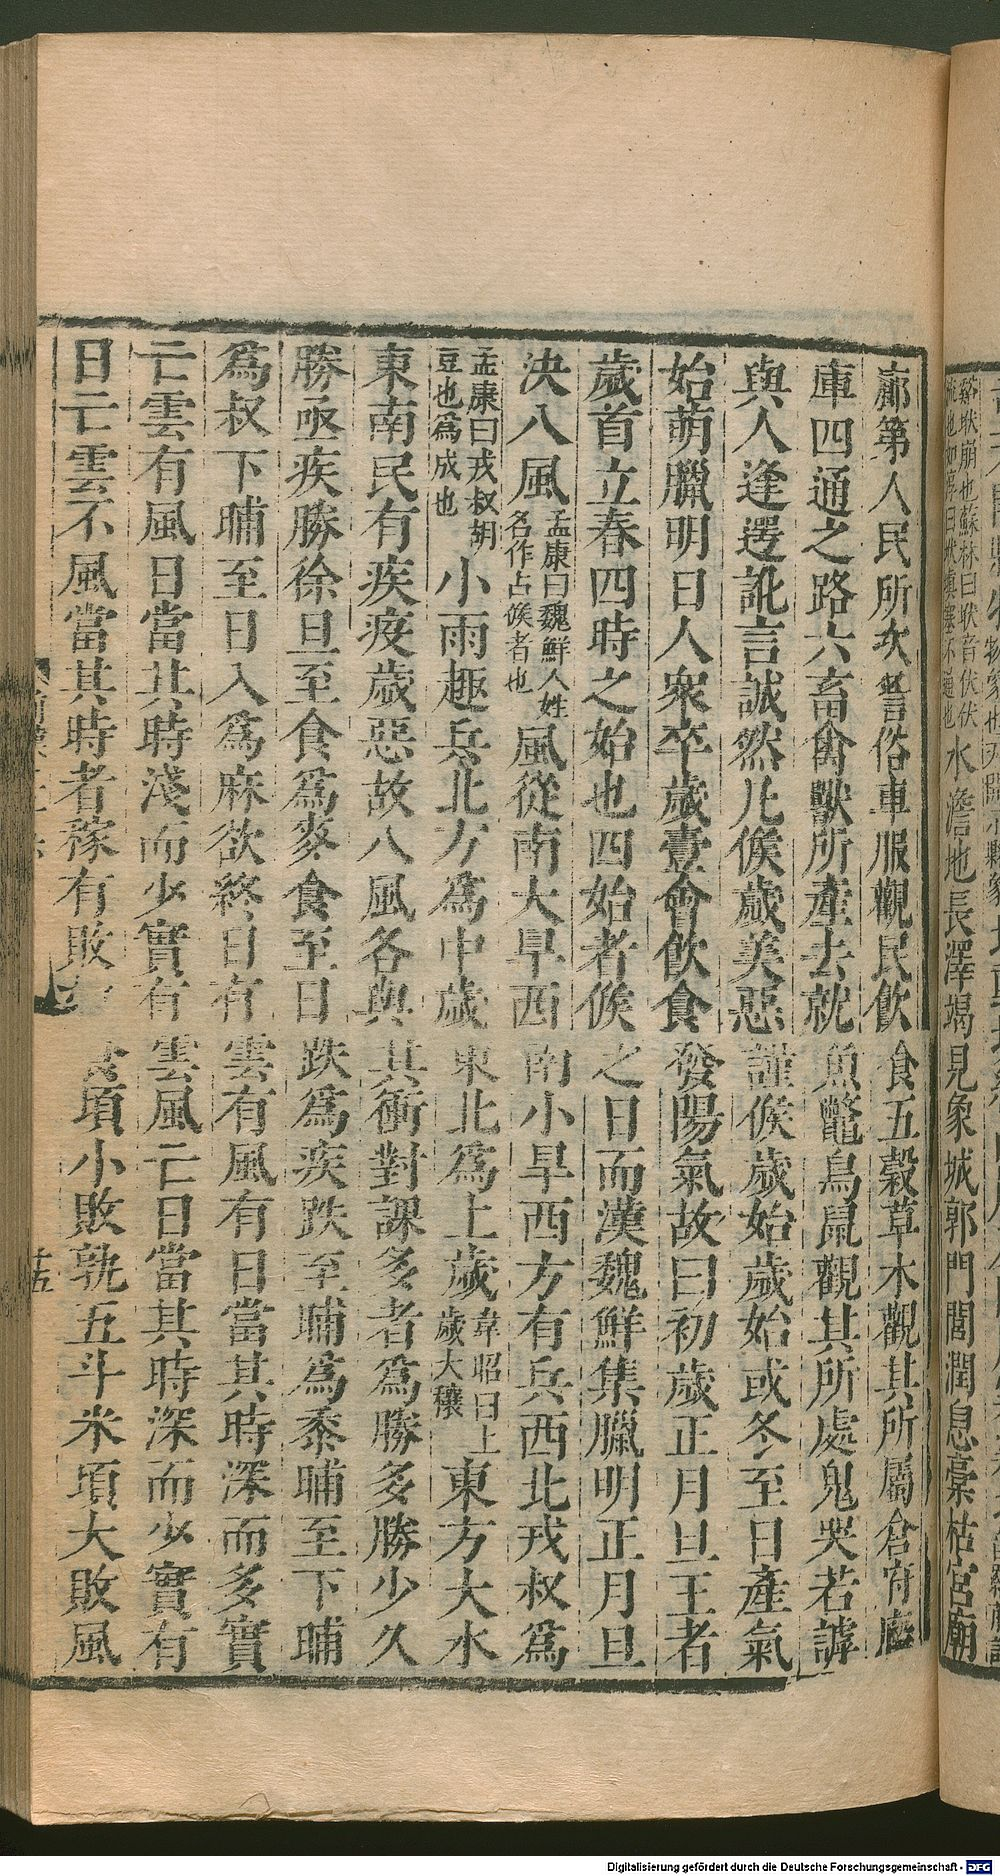 水澹地長澤竭見象城郭門閭潤息槀枯宮廟
廊第人民所次謠俗車服觀民飲食五穀草木觀其所屬倉府廐
庫四通之路六畜禽獸所產去就魚鼈鳥鼠觀其所處鬼哭若謼
與人逢遻訛言誠然凡候歲美惡謹候歲始歲始或冬至日產氣
始萌臘明日人衆卒歲壹會飲食發陽氣故曰初歲正月旦王者
歲首立春四時之始也四始者候之日而漢魏鮮集臘明正月旦
決八風孟康曰魏鮮人姓名作占候者也風從南大旱西南小旱西方有兵西北戎叔爲
孟康曰戎叔胡豆也爲成也小雨趣兵北方爲中歲東北爲上歲韋昭曰上歲大穰東方大水
東南民有疾疫歲惡故八風各與其衝對課多者爲勝多勝少久
勝亟疾勝徐旦至食爲麥食至日跌爲疾跌至晡爲黍晡至下晡
爲叔下晡至日入爲麻欲終日有雲有風有日當其時深而多實
亡雲有風日當其時淺而少實有雲風亡日當其時深而少實有
日亡雲不風當其時者稼有敗食頃小敗孰五斗米頃大敗風
Digitalisierung gefördert durch die Deutsche Forschungsgemeinschaft - DFG